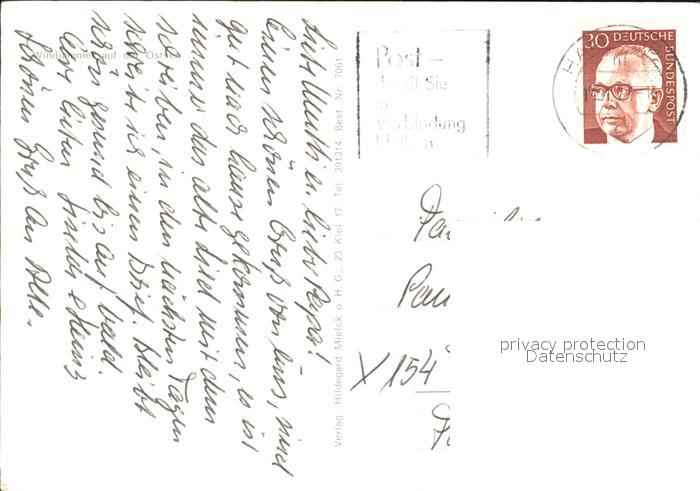 Windjammer auf der Ostsee
Liebe Mutti u. liebe Papa!
Einen schönen Gruß von uns, sind
gut nach hause gekommen, es ist
immer das alte Lied mit dem
schreiben, in den nächsten Tagen
schreibe ich einen Brief. Bleibt
schön gesund bis auf bald.
Eure lieben & Heinz
schönen Gruß an Alle.
Verlag Hildegard Mielck o. H. G., 23 Kiel 17, Tel. 391314, Best. Nr. 7061
Post –
damit Sie
in
Verbindung
bleiben
30 DEUTSCHE
BUNDESPOST
Pau
X 154
privacy protection
Datenschutz